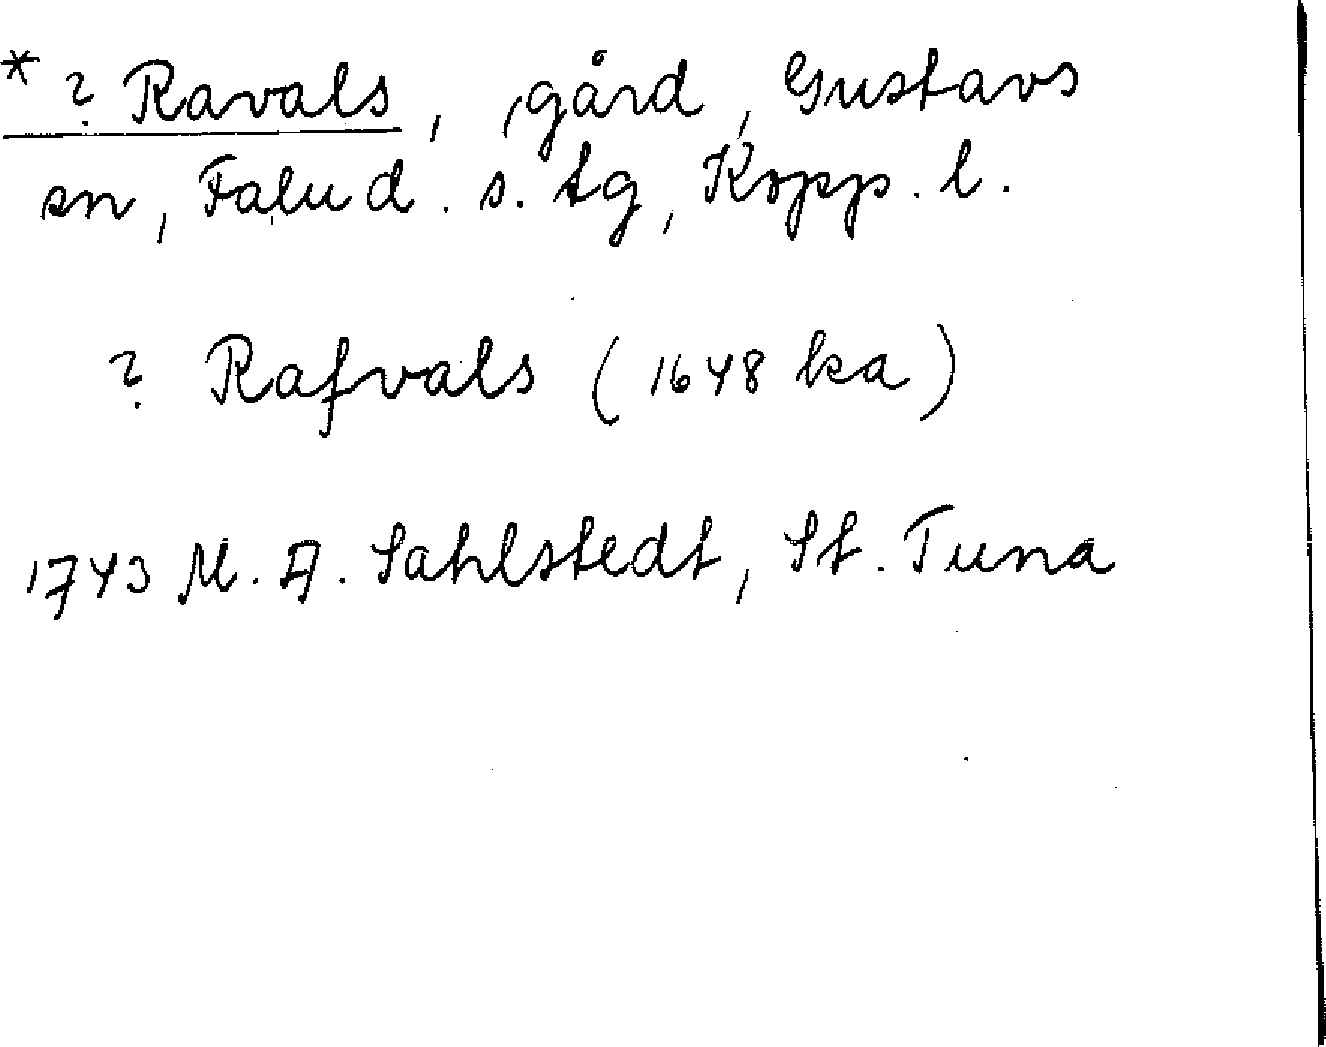 * ? Ravals, gård, Gustavs
sn, Falu d. s. tg, Kopp. l.
? Rafvals (1648 ka)
1743 M. A. Sahlstedt, St. Tuna